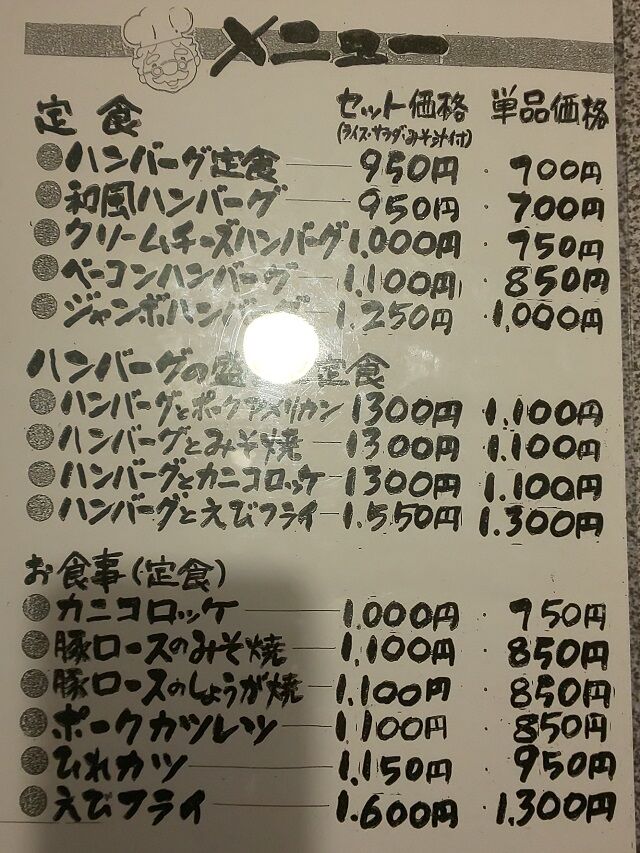 メニュー
定食 セット価格 単品価格
(ライス・サラダ・みそ汁付)
ハンバーグ定食 950円 ・ 700円
和風ハンバーグ 950円 ・ 700円
クリームチーズハンバーグ 1.000円 ・ 750円
ベーコンハンバーグ 1.100円 ・ 850円
ジャンボハンバーグ 1.250円 ・ 1.000円
ハンバーグの盛 定食
ハンバーグとポークアメリカン 1300円 1.100円
ハンバーグとみそ焼 1300円 ・ 1.100円
ハンバーグとカニコロッケ 1300円 1.100円
ハンバーグとえびフライ 1.550円 1.300円
お食事(定食)
カニコロッケ 1.000円 ・ 750円
豚ロースのみそ焼 1.100円 ・ 850円
豚ロースのしょうが焼 1.100円 ・ 850円
ポークカツレツ 1.100円 ・ 850円
ひれカツ 1.150円 950円
えびフライ 1.600円 1.300円